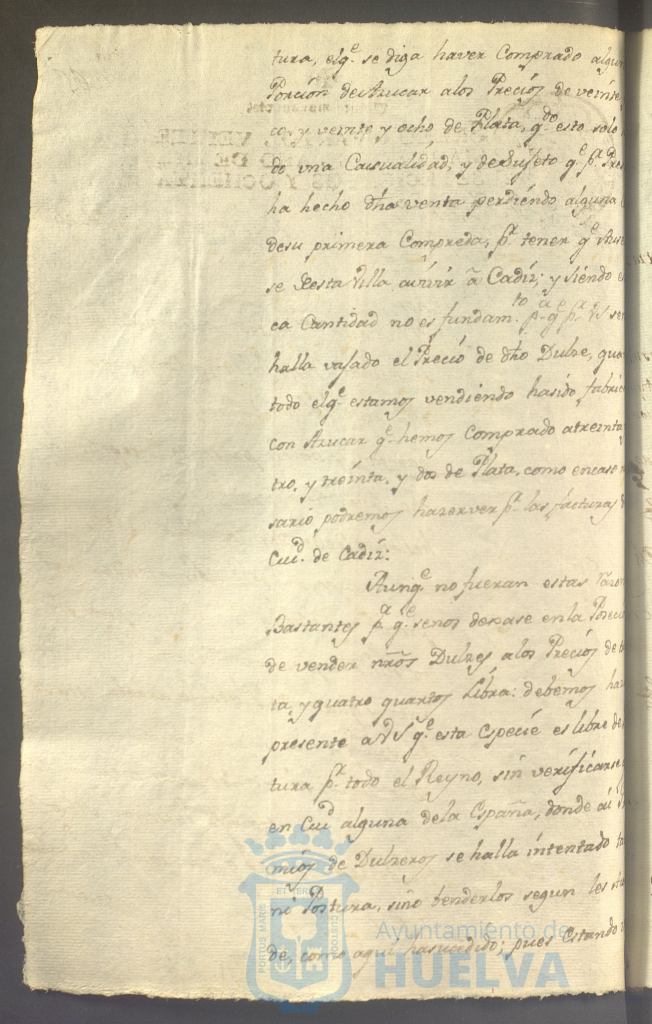 tura, elq.e se diga haver Comprado algun
Porción de Azucar a los Precios de veinte
co, y veinte y ocho de Plata, q.do esto solo
do vna Casualidad, y de Sujeto q.e p.r
ha hecho dha venta perdiendo alguna
de su primera Compreda, p.r tener q.e
se Desta Villa, a vivir a Cadíz; y siendo
ca Cantidad no es fundam.to p.a q.e p.r Vs
halla vasado el Precio de dho Dulze,
todo elq.e estamos vendiendo ha sido
con Azucar q.e hemos Comprado a treinta
tro, y treinta, y dos de Plata, como en caso
sario podremos hazer ver p.r las facturas
Ciu.d de Cadíz:
Aunq.e no fueran estas
Bastantes p.a q.e senos dexase en la
de vender nrõs Dulzes a los Precios de
ta, y quatro quartos Libra: debemos
presente a VS q.e esta Especie es libre de
tura p.r todo el Reyno, sin verificarse
en Ciu.d alguna de la España, donde ai
mios de Dulzeros se halla intentado
ni Postura, sino benderlos segun les
de, como aqui ha sucedido; pues Estando
PORTUS MARIS ET TERRE CUSTODIA
Ayuntamiento de
HUELVA